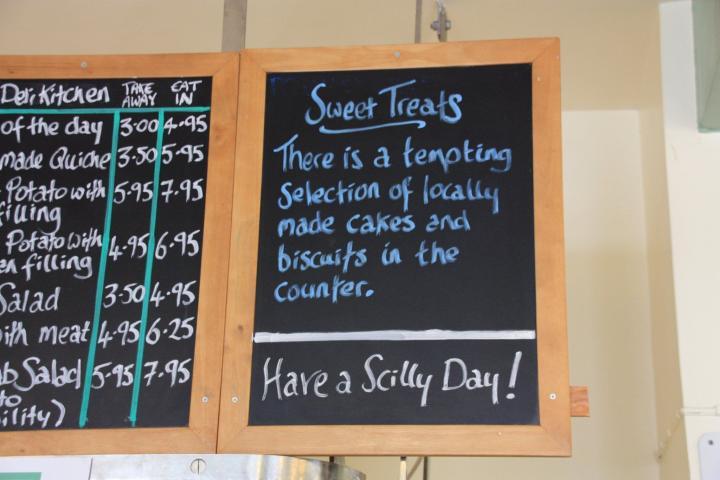 Deli Kitchen TAKE AWAY EAT IN
of the day 3.00 4.95
made Quiche 3.50 5.95
Potato with filling 5.95 7.95
Potato with filling 4.95 6.95
Salad 3.50 4.95
with meat 4.95 6.25
Salad 5.95 7.95
to
Sweet Treats
There is a tempting
selection of locally
made cakes and
biscuits in the
counter.
Have a Scilly Day!